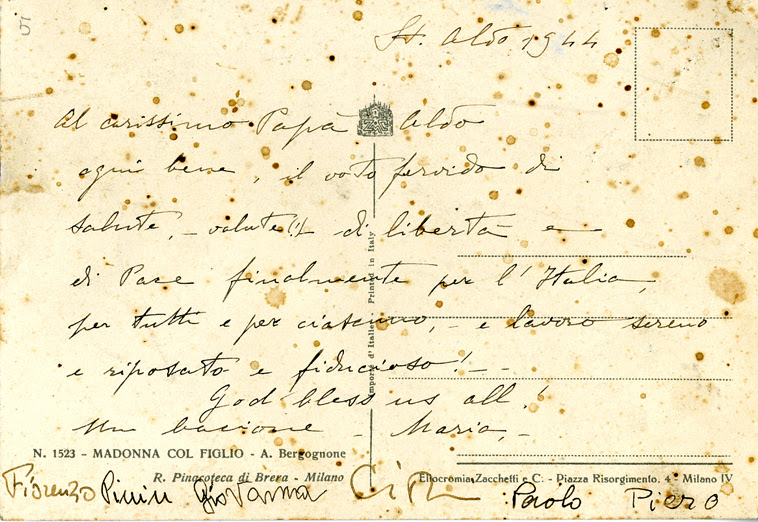 St. Aldo 1944
Al carissimo Papà Aldo
ogni bene, il voto fervido di
salute, - valute (!) di libertà e -
di Pace finalmente per l'Italia,
per tutti e per ciascuno, - e lavoro sereno
e riposato e fiducioso! - -
God bless us all!
Un bacione - Maria, -
Importé d'Italie - Printed in Italy
N. 1523 - MADONNA COL FIGLIO - A. Bergognone
R. Pinacoteca di Brera - Milano
Eliocromia Zacchetti e C. - Piazza Risorgimento, 4 - Milano IV
Fiorenzo Pinin Giovanna Paolo Piero